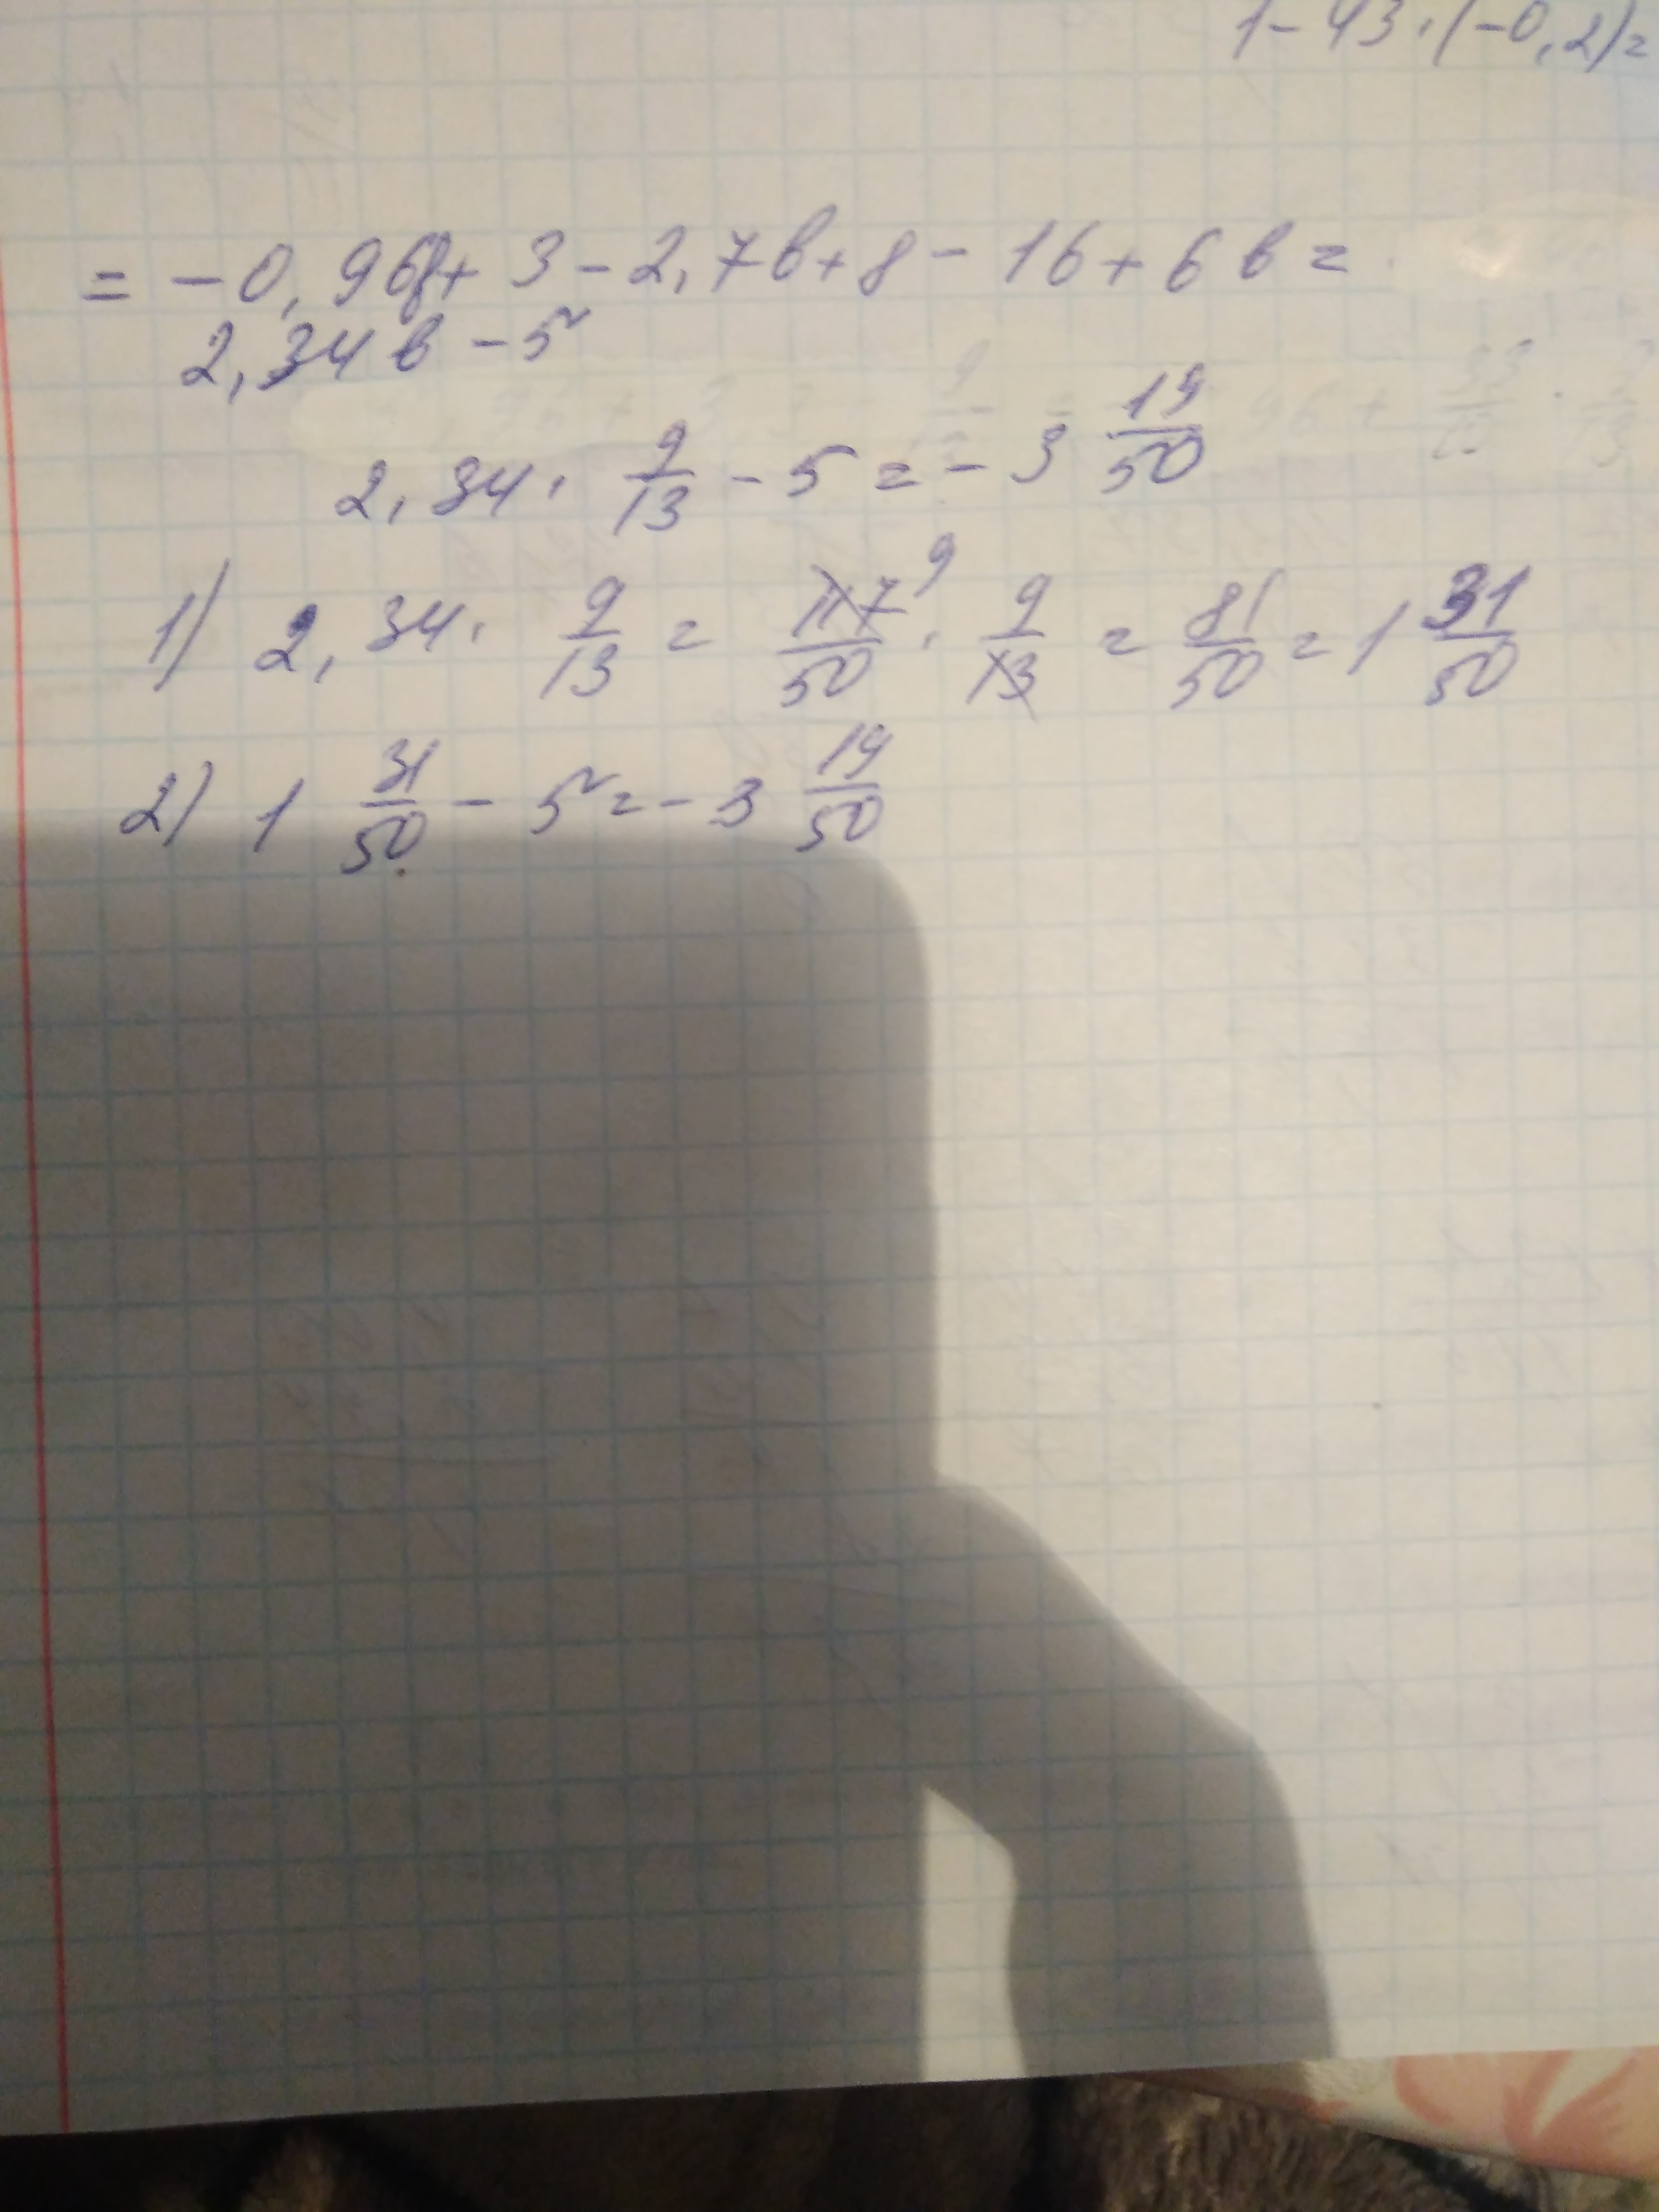 1-43·(-0,2)=
= -0,96в+3-2,7в+8-16+6в=
2,34в-5
2,34·9/13-5=-3 19/50
1) 2,34·9/13=117/50 9·9/13=81/50=1 31/50
2) 1 31/50-5=-3 19/50